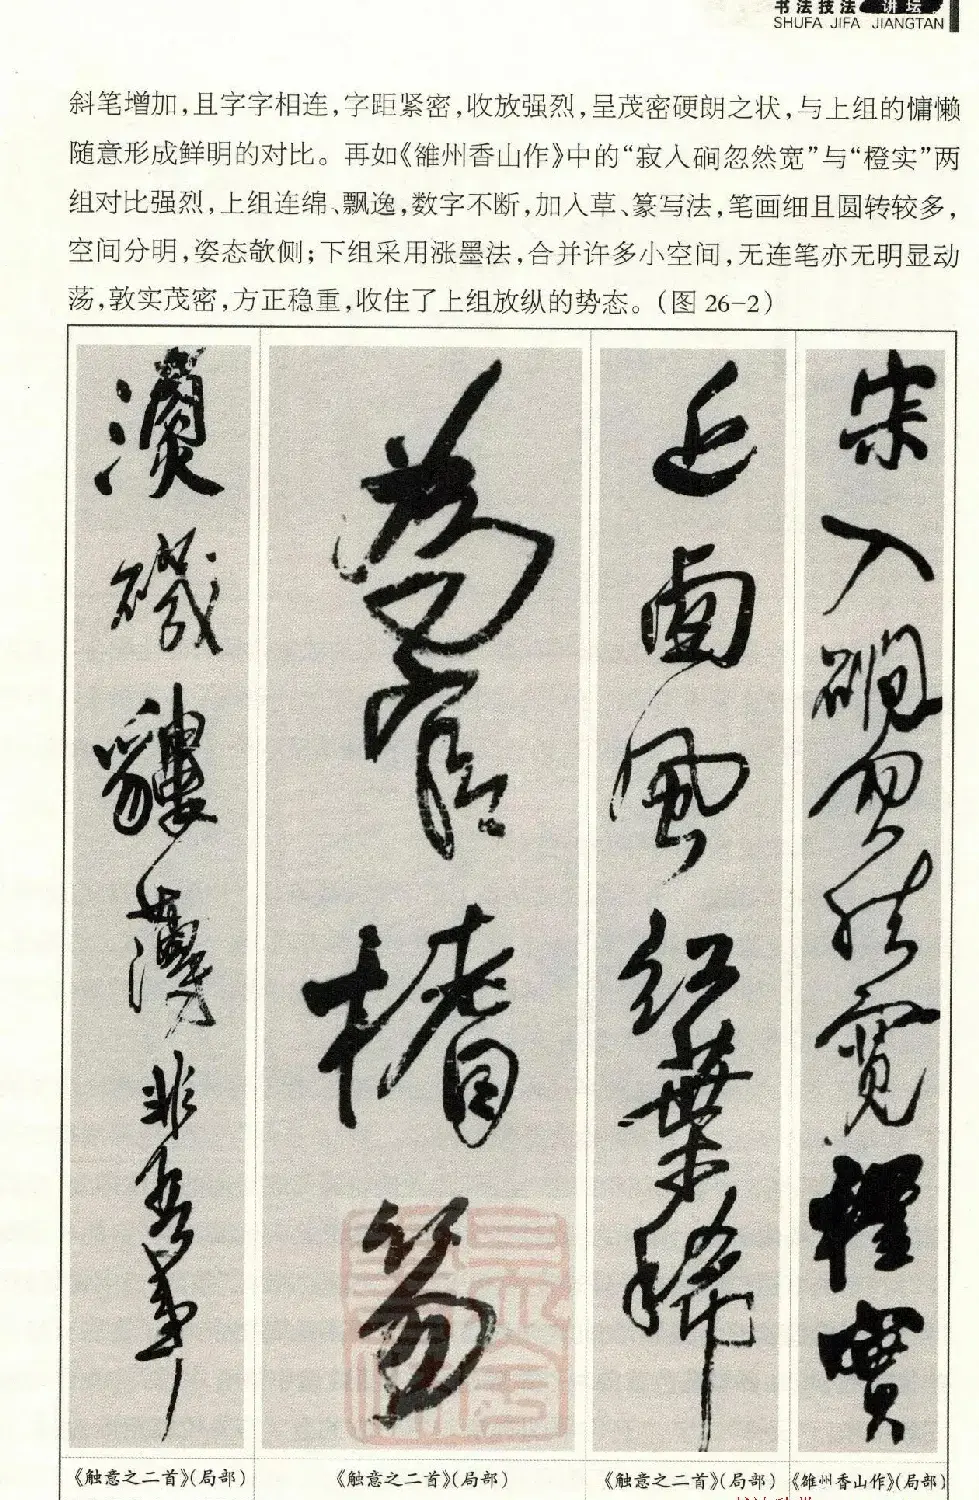 书法技法 讲坛
SHUFA JIFA JIANGTAN
斜笔增加,且字字相连,字距紧密,收放强烈,呈茂密硬朗之状,与上组的慵懒
随意形成鲜明的对比。再如《雒州香山作》中的“寂入硐忽然宽”与“橙实”两
组对比强烈,上组连绵、飘逸,数字不断,加入草、篆写法,笔画细且圆转较多,
空间分明,姿态欹侧;下组采用涨墨法,合并许多小空间,无连笔亦无明显动
荡,敦实茂密,方正稳重,收住了上组放纵的势态。(图 26-2)
入磵忽然寬橙實
近鹵風紅葉稀
為官楮笏
磯薄非吾事
《触意之二首》(局部)
《触意之二首》(局部)
《触意之二首》(局部)
《雒州香山作》(局部)